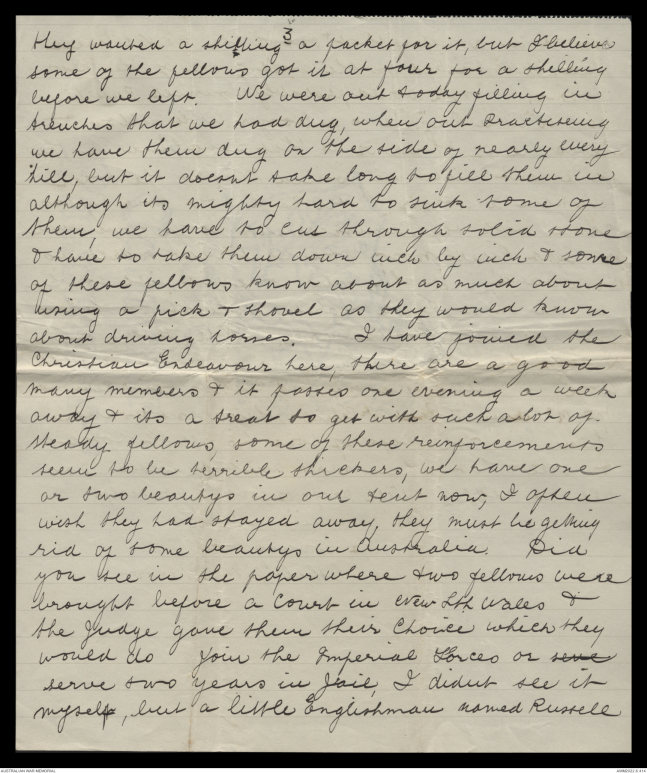 3
they wanted a shilling a packet for it, but I believe
some of the fellows got it at four for a shilling
before we left. We were out today filling in
trenches that we had dug, when out practiseing
we have them dug on the side of nearly every
hill, but it doesnt take long to fill them in
although its mighty hard to sink some of
them, we have to cut through solid stone
& have to take them down inch by inch & some
of these fellows know about as much about
using a pick & shovel as they would know
about driving horses. I have joined the
Christian Endeavour here, there are a good
many members & it passes one evening a week
away & its a treat to get with such a lot of
steady fellows, some of these reinforcements
seem to be terrible shickers, we have one
or two beautys in our tent now, I often
wish they had stayed away, they must be getting
rid of some beautys in Australia. Did
you see in the paper where two fellows were
brought before a Court in New Sth Wales &
the Judge gave them their Choice which they
would do Join the Imperial Forces or serve
serve two years in Jail, I didnt see it
myself, but a little Englishman named Russell
AUSTRALIAN WAR MEMORIAL